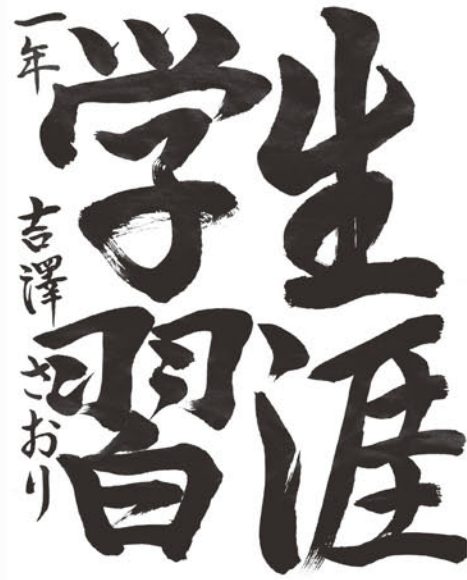 生涯
学習
一年 吉澤さおり